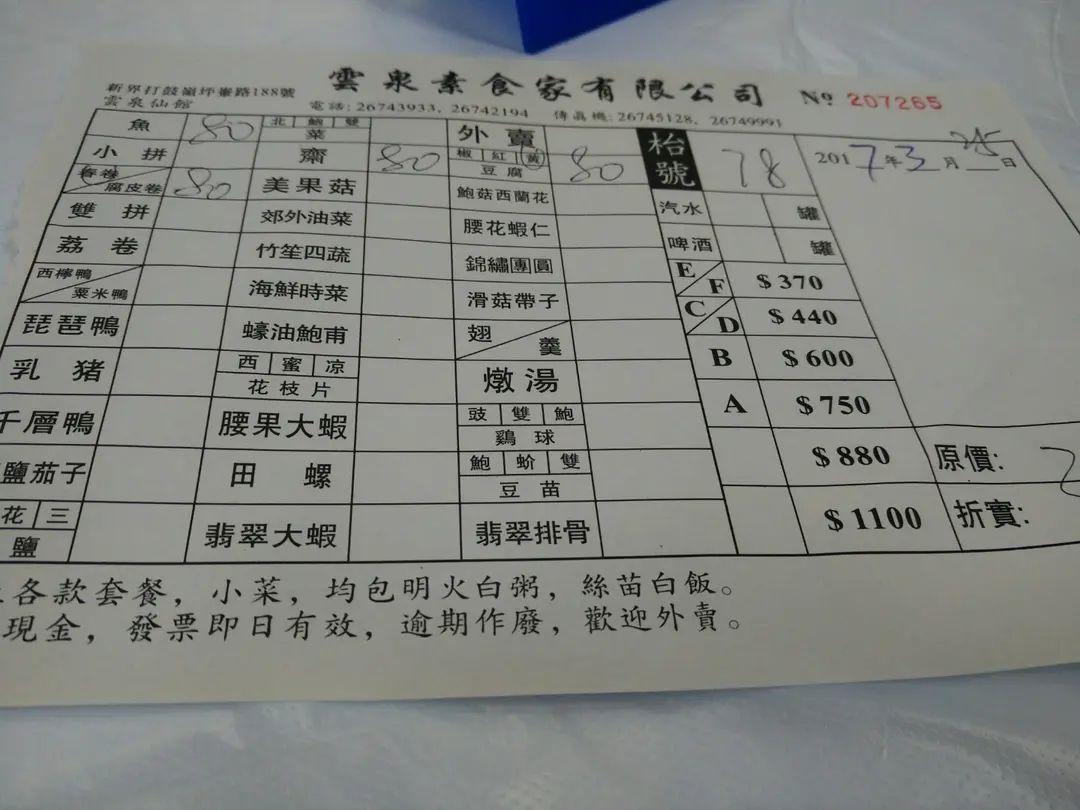 雲泉素食家有限公司 Nº 207265
新界打鼓嶺坪輋路188號
雲泉仙館 電話: 26743933, 26742194 傳眞機: 26745128, 26749991
魚 80 北 鮑 雙 菜 外賣 枱號 78 2017年3月25日
小拼 齋 80 椒 紅 黃 豆腐 80
春卷 腐皮卷 80 美果菇 鮑菇西蘭花 汽水 罐
雙拼 郊外油菜 腰花蝦仁 啤酒 罐
荔卷 竹笙四蔬 錦繡團圓 E/F $370
西檸鴨 粟米鴨 海鮮時菜 滑菇帶子 C/D $440
琵琶鴨 蠔油鮑甫 翅 羹 B $600
乳豬 西 蜜 凉 花枝片 燉湯 A $750
千層鴨 腰果大蝦 豉 雙 鮑 鷄球 $880 原價: 2
鹽茄子 田螺 鮑 蚧 雙 豆苗 $1100 折實:
花 三 鹽 翡翠大蝦 翡翠排骨
各款套餐，小菜，均包明火白粥，絲苗白飯。
現金，發票即日有效，逾期作廢，歡迎外賣。